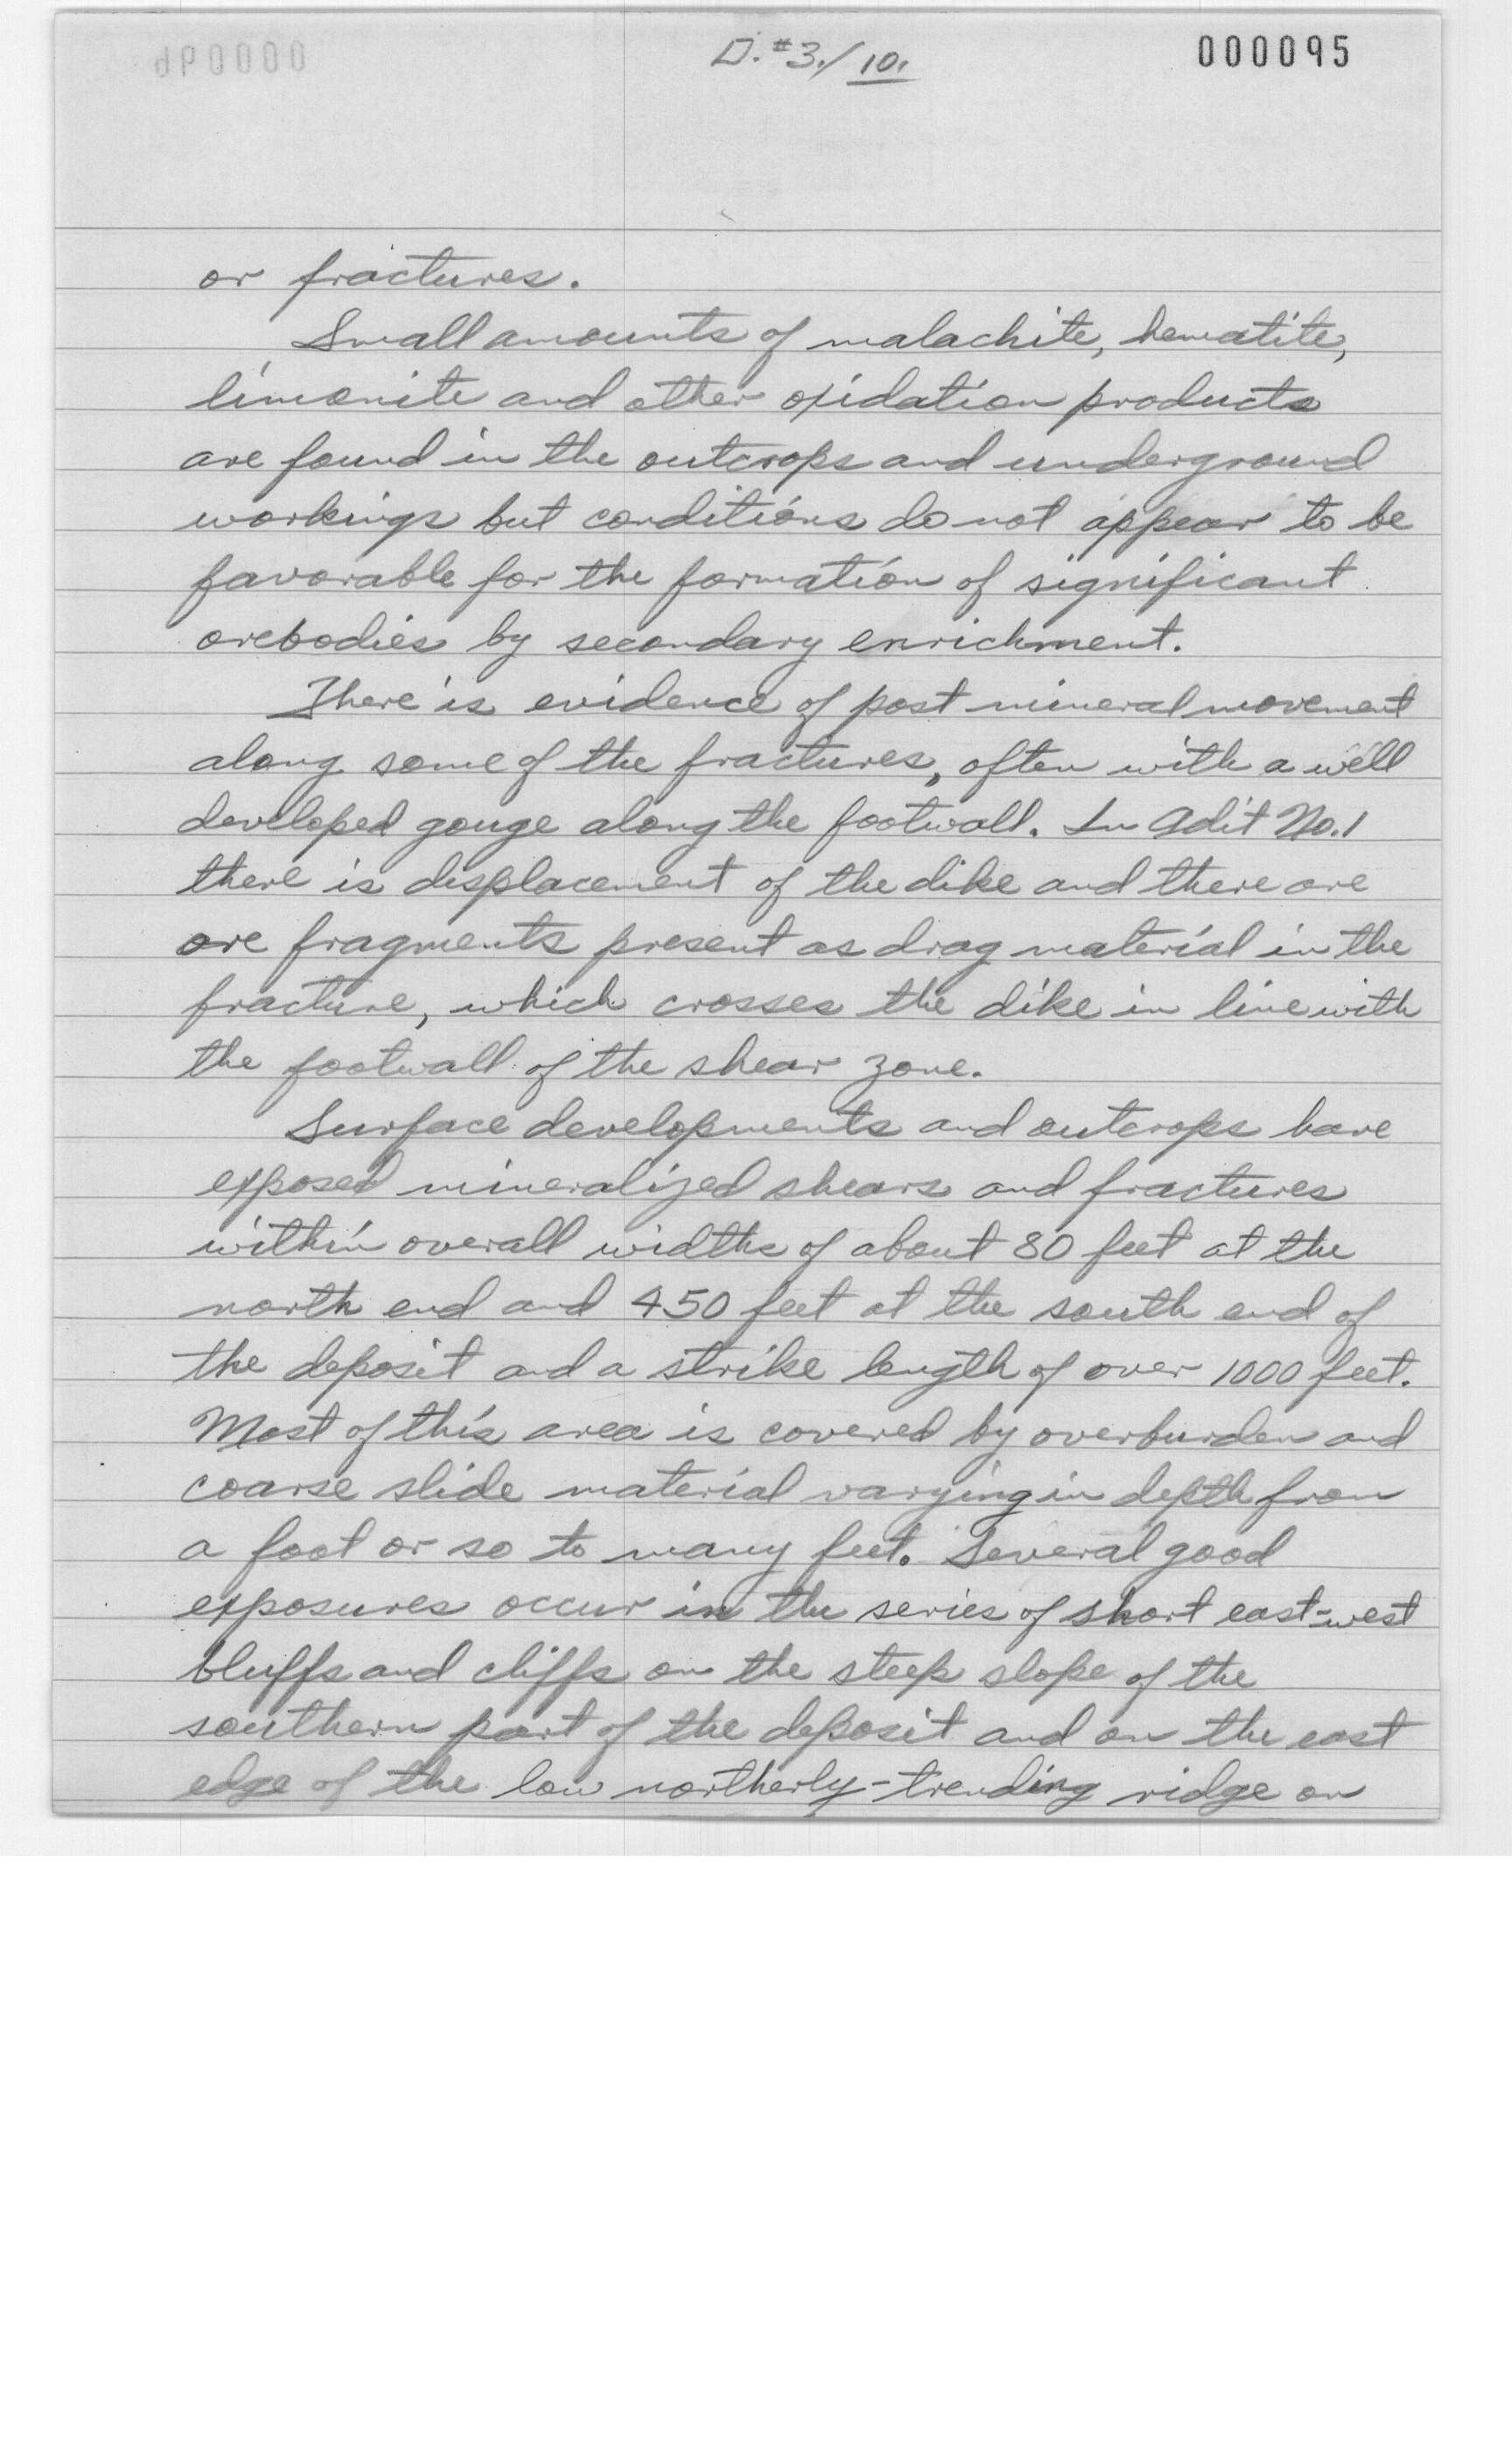 D. #3./10.
000095
or fractures.
Small amounts of malachite, hematite,
limonite and other oxidation products
are found in the outcrops and underground
workings but conditions do not appear to be
favorable for the formation of significant
orebodies by secondary enrichment.
There is evidence of post mineral movement
along some of the fractures, often with a well
developed gouge along the footwall. In Adit No. 1
there is displacement of the dike and there are
ore fragments present as drag material in the
fracture, which crosses the dike in line with
the footwall of the shear zone.
Surface developments and outcrops have
exposed mineralized shears and fractures
within overall widths of about 80 feet at the
north end and 450 feet at the south end of
the deposit and a strike length of over 1000 feet.
Most of this area is covered by overburden and
coarse slide material varying in depth from
a foot or so to many feet. Several good
exposures occur in the series of short east-west
bluffs and cliffs on the steep slope of the
southern part of the deposit and on the east
edge of the low northerly-trending ridge on